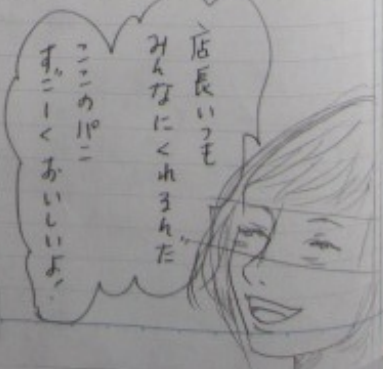 店長いつも
みんなにくれるんだ
ここのパン
すごーくおいしいよ!